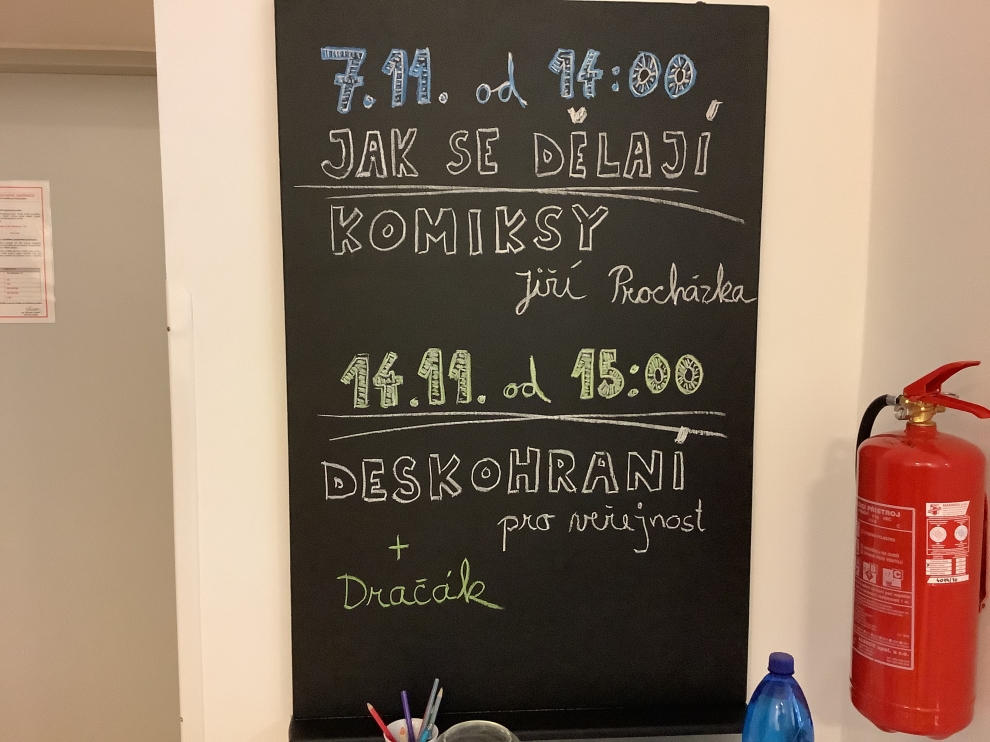 7.11. od 14:00
JAK SE DĚLAJÍ
KOMIKSY
Jiří Procházka
14.11. od 15:00
DESKOHRANÍ
pro veřejnost
+
Dračák